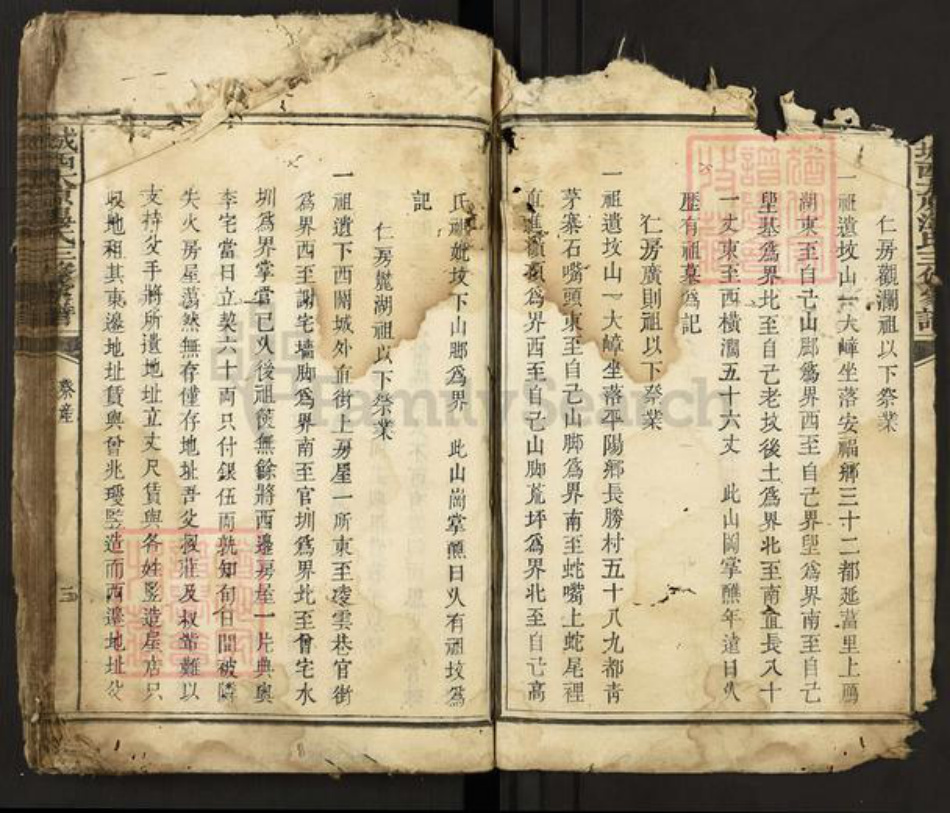 仁房觀瀾祖以下祭業
一祖遺坟山一大嶂坐落安福鄉三十二都延當里上鴈
湖東至自己山脚為界西至自己界壂為界南至自己
壂基為界北至自己老坟後土為界北至南直長八十
一丈東至西橫濶五十六丈 此山岡掌醮年遠日久
歷有祖墓為記
仁房廣則祖以下祭業
一祖遺坟山一大嶂坐落平陽鄉長勝村五十八九都靑
茅寨石嘴頭東至自己山脚為界南至蛇嘴上蛇尾裡
直進橫夜為界西至自己山脚荒坪為界北至自己高
氏祖妣坟下山脚為界 此山崗掌醮日久有祖坟為
記
仁房龍湖祖以下祭業
一祖遺下西關城外直街上房屋一所東至凌雲巷官街
為界西至謝宅墻脚為界南至官圳為界北至曾宅水
圳為界掌管已久後祖使無餘將西邊房屋一片典與
李宅當日立契六十兩只付銀伍兩孰知旬日間被隣
失火房屋蕩然無存僅存地址吾父授莊及叔常難以
支持父手將所遺地址立丈尺賃與各姓竪造屋店只
收地租其東邊地址賃與曾兆璦竪造而西邊地址父
祭産
三
FamilySearch